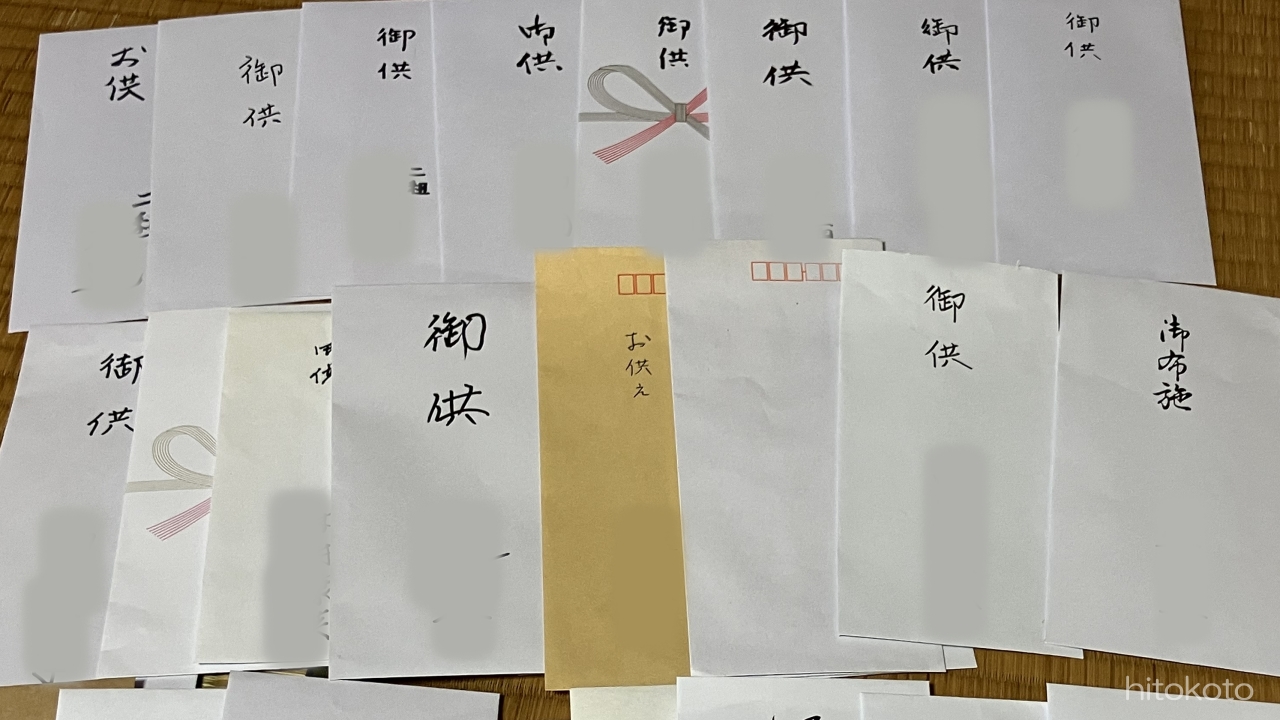 お供
御供
御供
二組
御供
御供
御供
御供
御供
御供
御供
お供え
御供
御布施
hitokoto